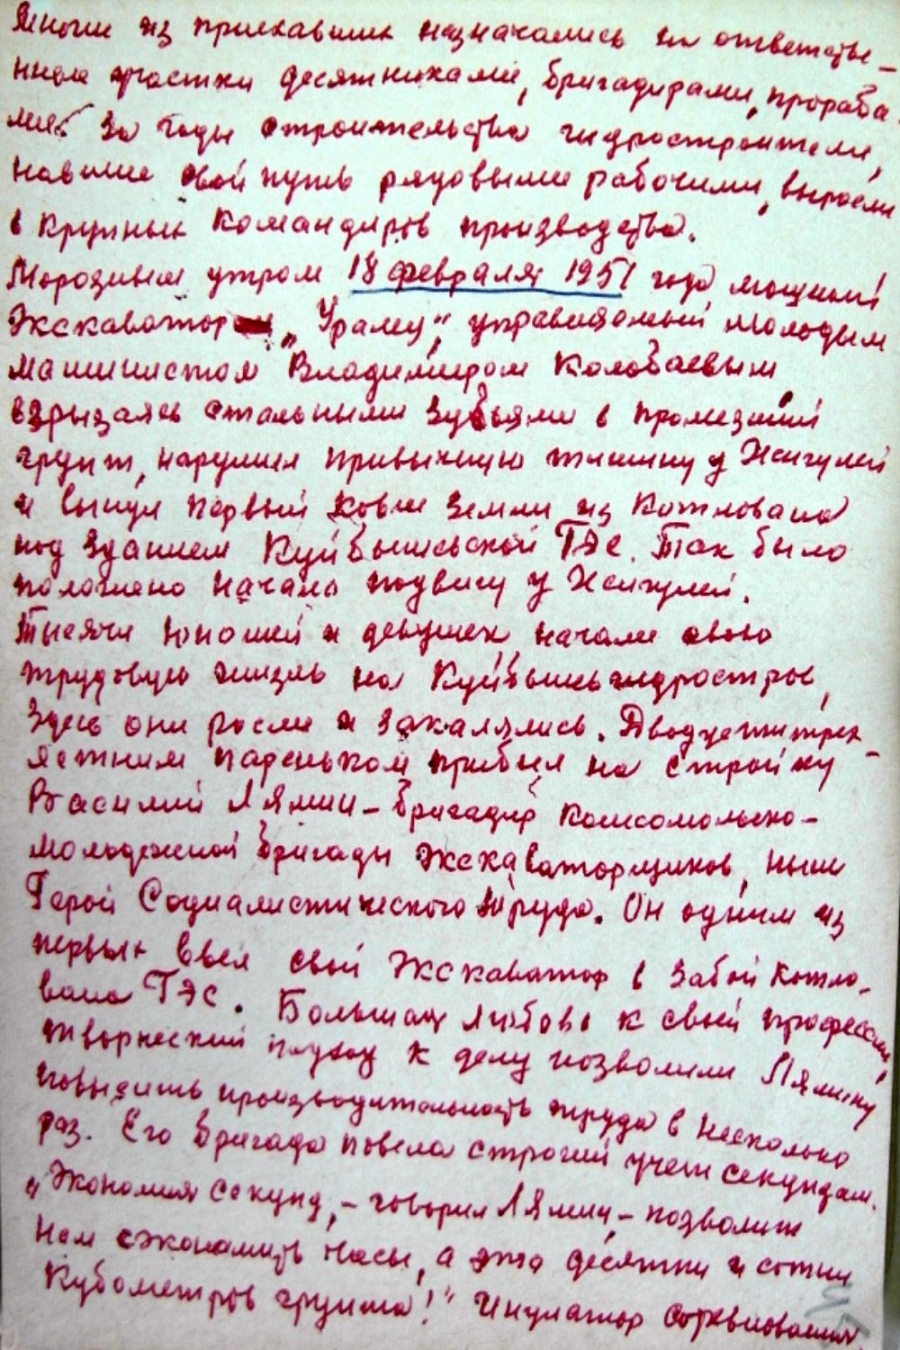 Многие из приехавших назначались на ответстве-
нные участки десятниками, бригадирами, прораба-
ми. За годы строительства гидростроители,
навшие свой путь рядовыми рабочими, выросли
в крупных командиров производства.
Морозным утром 18 февраля 1951 года мощный
Экскаватор „Уралец", управляемый молодым
машинистом Владимиром Колобаевым
врызаясь стальными зубьями в промёзший
грунт, нарушил привычную тишину у Жигулей
и вынул первый ковш земли из котлована
под зданием Куйбышевской ГЭС. Так было
положено начало подвигу у Жигулей.
Тысячи юношей и девушек начали свою
трудовую жизнь на Куйбышевгидрострое,
Здесь они росли и закалялись. Двадцатитрех-
летним пареньком прибыл на стройку
Василий Лямин – бригадир Комсомольско-
молодежной бригады экскаваторщиков, ныне
Герой Социалистического Труда. Он одним из
первых ввел свой Экскаватор в забой котло-
вана ГЭС. Большая любовь к своей профессии,
творческий подход к делу позволили Лямину
повысить производительность труда в несколько
раз. Его бригада повела строгий учет секундам.
„Экономия секунд, – говорил Лямин – позволит
нам сэкономить часы, а это десятки и сотни
кубометров грунта!" Инициатор соревнования